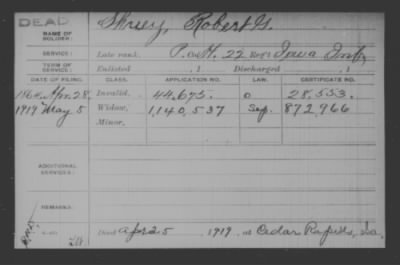 DEAD
NAME OF SOLDIER: Robert G.
SERVICE: Late rank, P. Co. H. 22 Reg't Iowa Inf.
TERM OF SERVICE: Enlisted , 1 Discharged , 1
DATE OF FILING. CLASS. APPLICATION NO. CERTIFICATE NO.
1864 Apr. 28. Invalid, 44,675. 0 28,553.
1919 May 5 Widow, 1,140,537 Sep. 872,966
Minor,
ADDITIONAL SERVICES:
REMARKS:
Died Apr 25 1919, at Cedar Rapids, Ia.